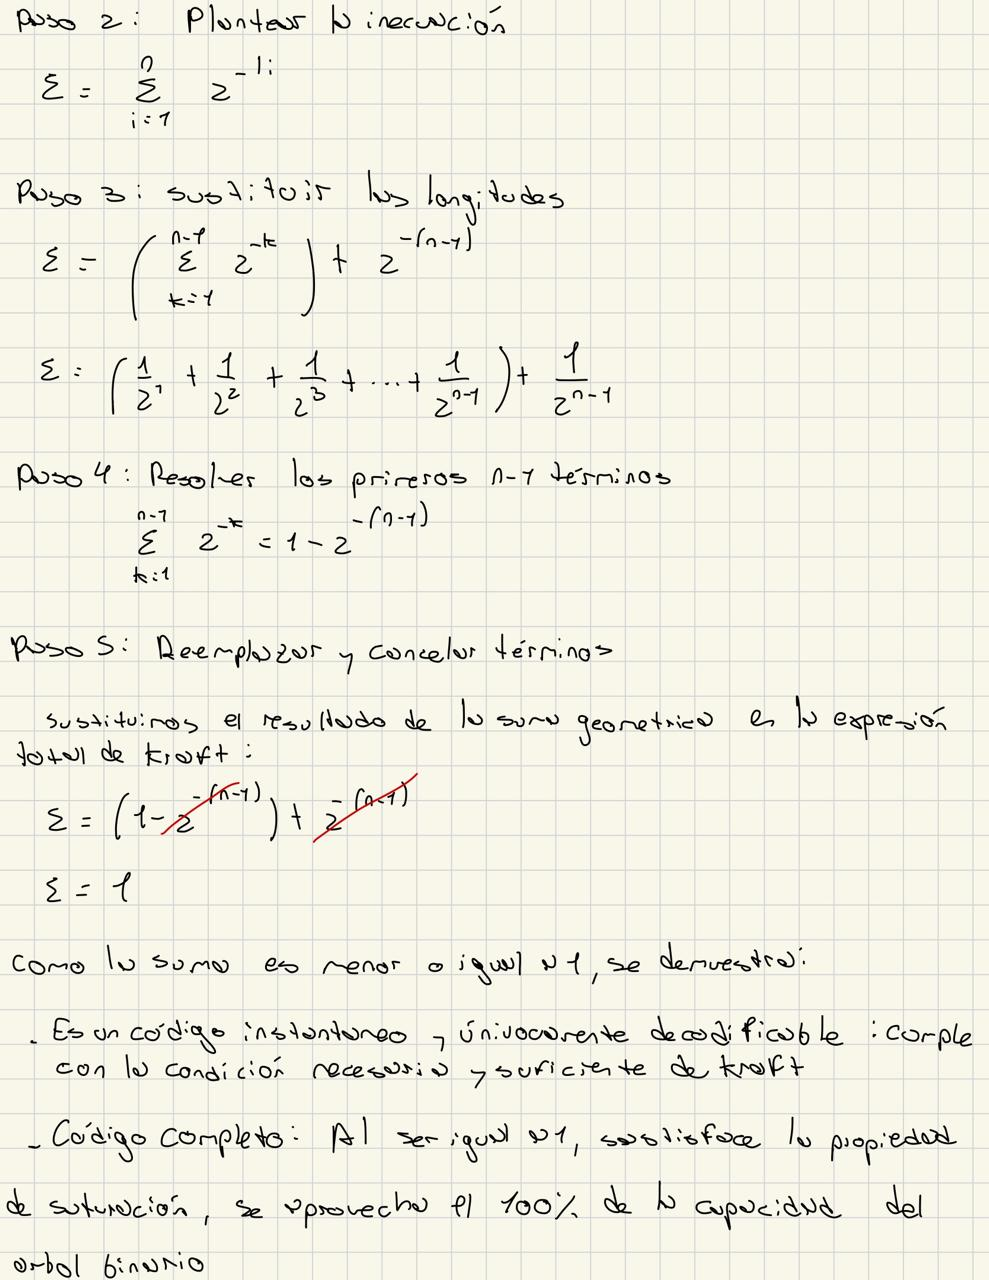 Paso 2: Plantear la inecuación
Σ = Σ_{i=1}^{n} 2^{-li}
Paso 3: sustituir las longitudes
Σ = ( Σ_{k=1}^{n-1} 2^{-k} ) + 2^{-(n-1)}
Σ = ( 1/2^1 + 1/2^2 + 1/2^3 + ... + 1/2^{n-1} ) + 1/2^{n-1}
Paso 4: Resolver los primeros n-1 términos
Σ_{k=1}^{n-1} 2^{-k} = 1 - 2^{-(n-1)}
Paso 5: Reemplazar y cancelar términos
sustituimos el resultado de la suma geometrica en la expresión
total de kraft:
Σ = (1 - 2^{-(n-1)}) + 2^{-(n-1)}
Σ = 1
como la suma es menor o igual a 1, se demuestra:
. Es un código instantaneo y únivocamente decodificable : cumple
con la condición necesaria y suficiente de kraft
- Código completo: Al ser igual a 1, satisface la propiedad
de saturación, se aprovecha el 100% de la capacidad del
arbol binario